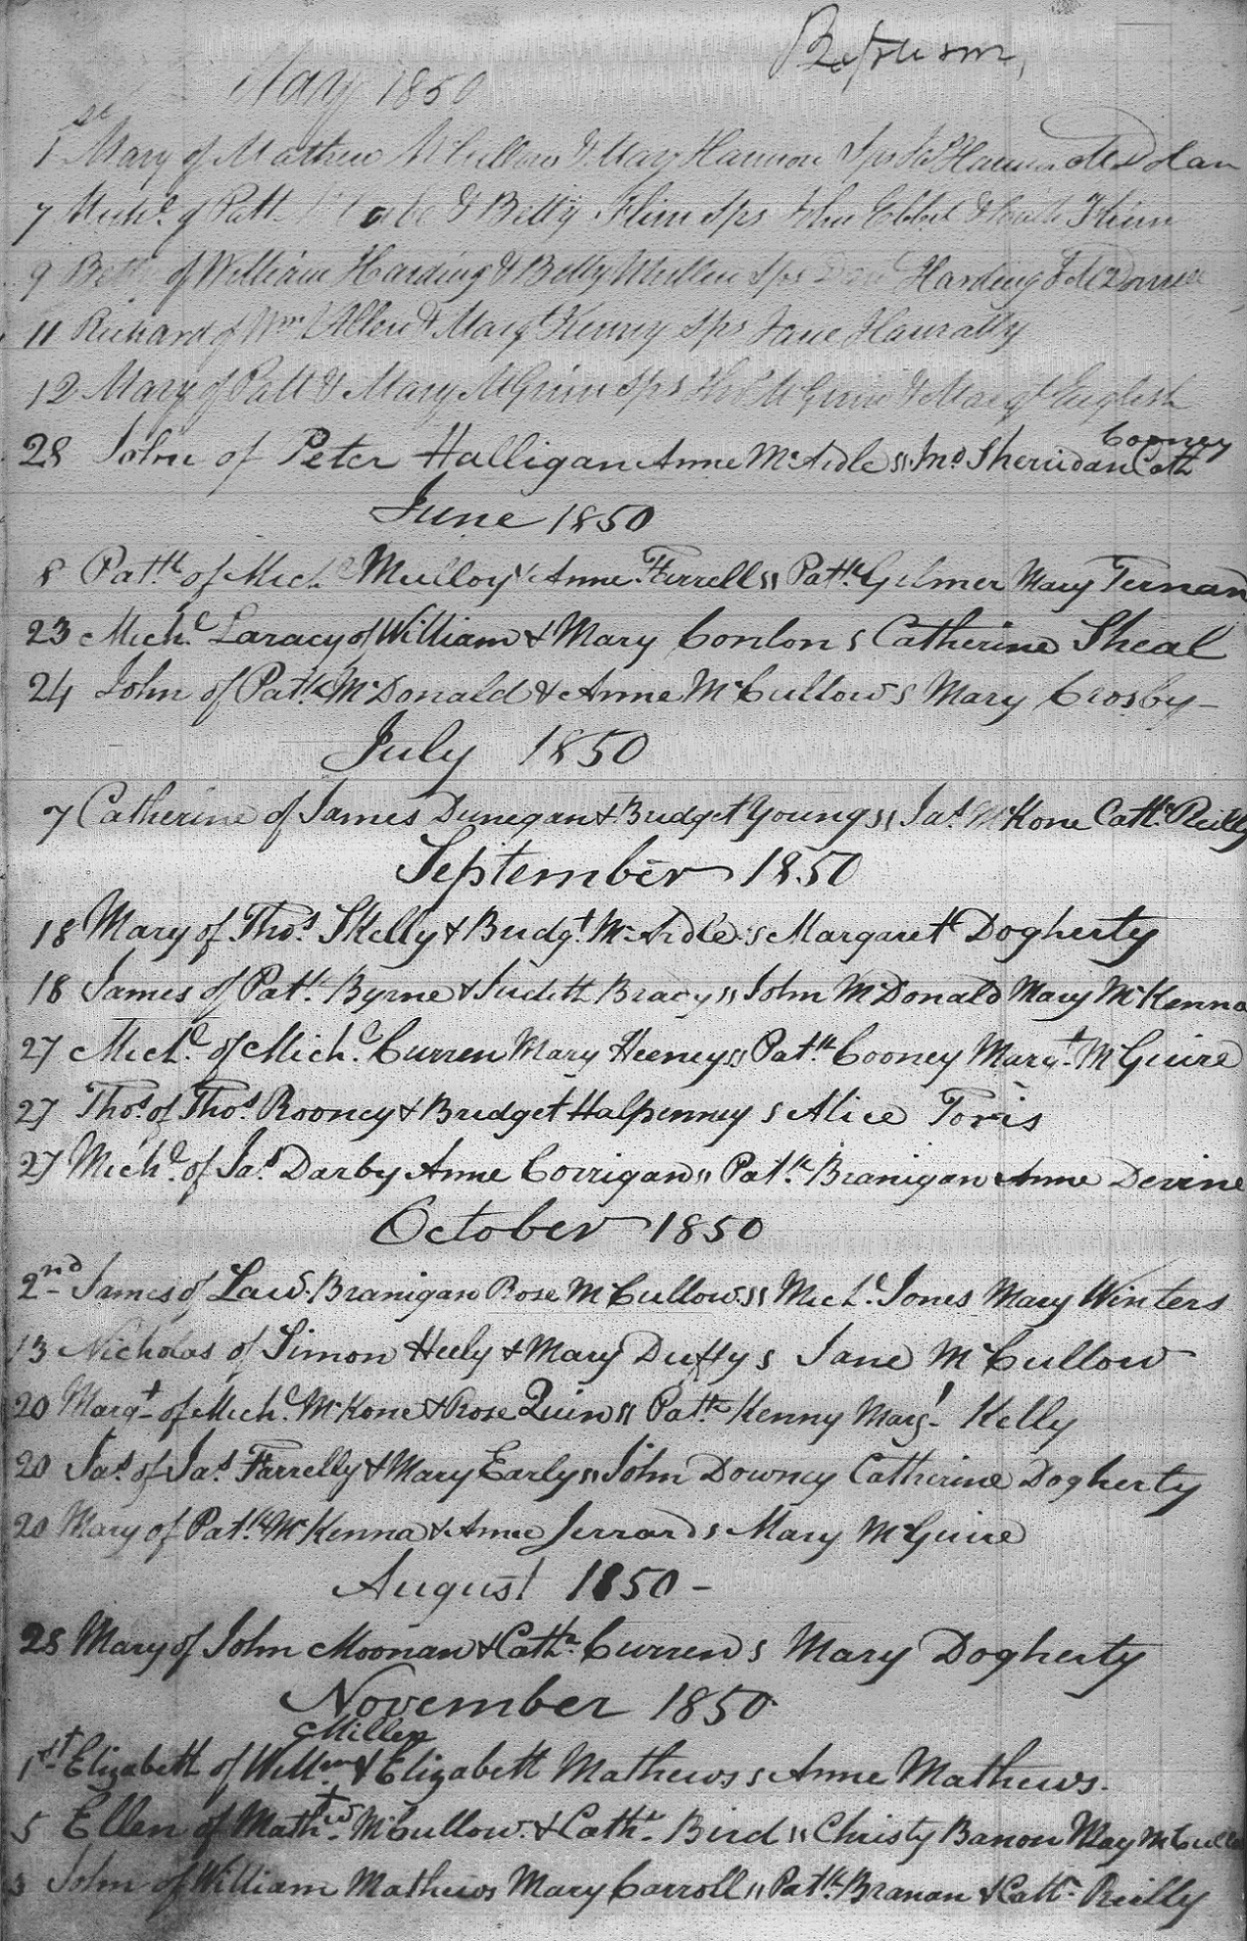 Baptism,
May 1850
1st Mary of Mathew McCullow & May Hannon Sps Hannon Dolan
7 Michl. of Patt & Betty Flinn Sps John & Flinn
9 of William Harding & Betty Mullen Sps Harding &
11 Richard of Wm Allen & Margt Kenny Sps Jane Hanratty
12 Mary of Patt & Mary McGuire Sps Thos McGuire & Margt English
Cooney
28 John of Peter Halligan Anne McArdle ss Jno Sheridan Cath
June 1850
8 Patk. of Michl Mulloy & Anne Farrell ss Patk. Gilmer Mary Ternan
23 Michl. Laracy of William & Mary Conlon s Catherine Sheal
24 John of Patk. McDonald & Anne McCullow s Mary Crosby -
July 1850
7 Catherine of James Dunegan & Bridget Young ss Jas. McKone Cathe. Reilly
September 1850
18 Mary of Thos. Skelly & Bridgt. McArdle s Margaret Dogherty
18 James of Patk. Byrne & Judith Bracy ss John McDonald Mary McKenna
27 Michl. of Michl. Curren Mary Heeney ss Patk. Cooney Margt. McGuire
27 Thos. of Thos. Rooney & Bridget Halpenney s Alice Toris
27 Michl. of Jas. Darby Anne Corrigan ss Patk. Branigan Anne Devine
October 1850
2nd James of Law. Branigan Rose McCullow ss Michl. Jones Mary Winters
13 Nicholas of Simon Heely & Mary Duffy s Jane McCullow
20 Margt. of Michl. McKone & Rose Quin ss Patk. Kenny Margt. Kelly
20 Jas. of Jas. Farrelly & Mary Early ss John Downey Catherine Dogherty
20 Mary of Patk. McKenna & Anne Jerrard s Mary McGuire
August 1850 -
28 Mary of John Moonan & Cathe. Curren s Mary Dogherty
November 1850
Miller
1st Elizabeth of Willm. & Elizabeth Mathews s Anne Mathews.
5 Ellen of Mathew McCullow. & Cathe. Bird ss Christy Banon May McCullow
3 John of William Mathews Mary Carroll ss Patk. Branan & Cathe. Reilly